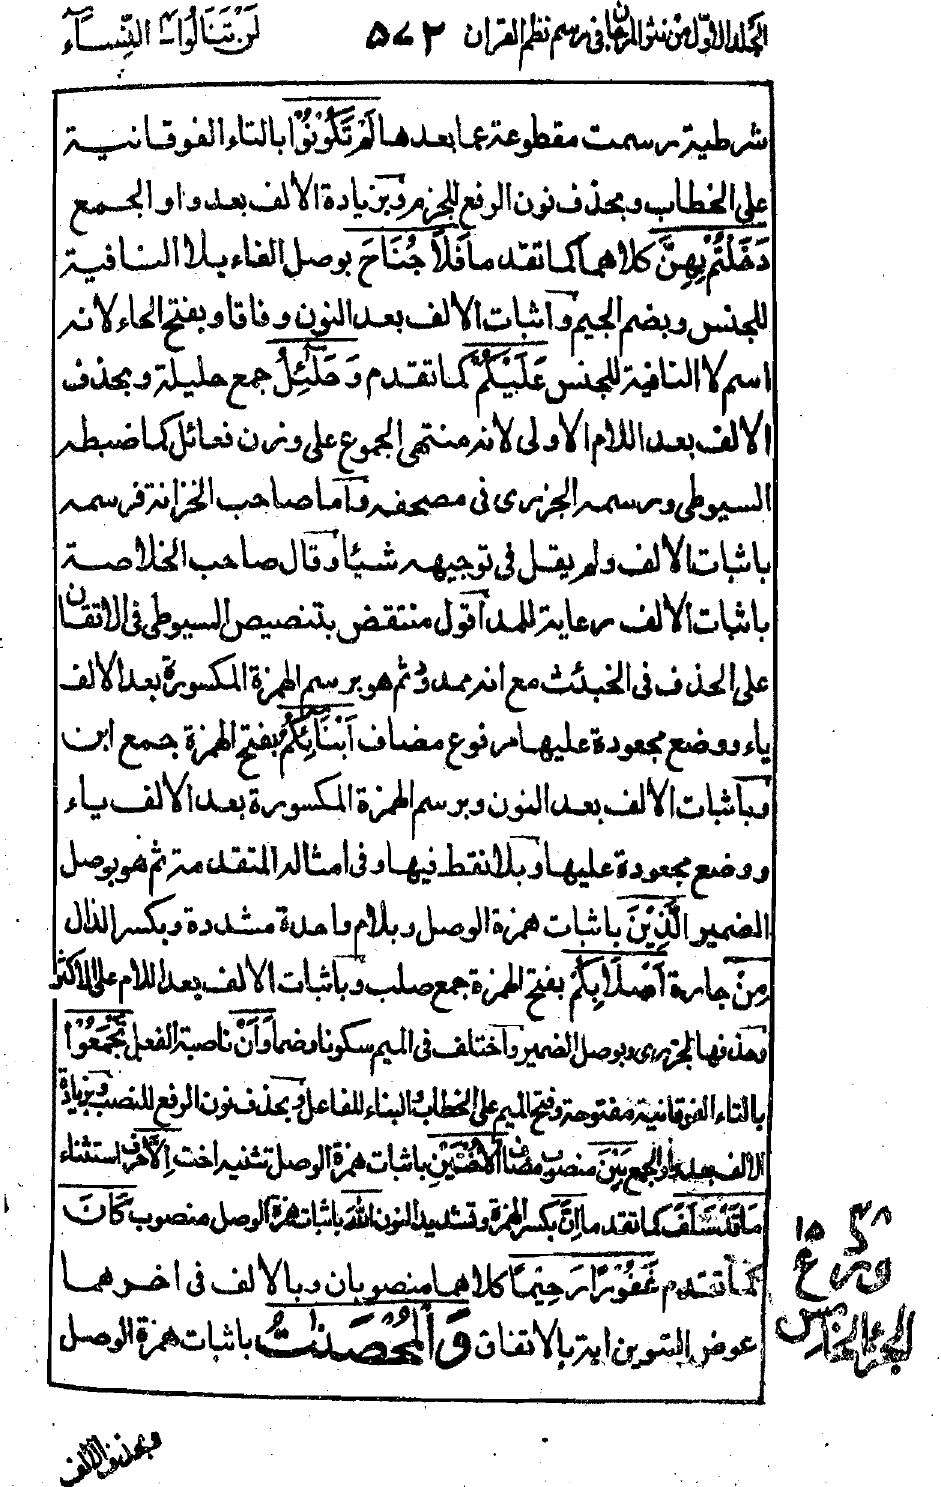 لن تنالوا ـ النساء
٥٧٢
المجلد الاول من نثر المرجان في رسم نظم القران
شرطية رسمت مقطوعة عما بعدها لَمْ تَكُوْنُوْا بالتاء الفوقانية
على الخطاب وبحذف نون الرفع للجزم وبزيادة الالف بعد واو الجمع
دَخَلْتُمْ بِهِنَّ كلاهما كما تقدما فَلَا جُنَاحَ بوصل الفاء بلا النافية
للجنس وبضم الجيم واثبات الالف بعد النون وفاقا وبفتح الحاء لانه
اسم لا النافية للجنس عَلَيْكُمْ كما تقدم وَحَلَٰٓئِلُ جمع حليلة وبحذف
الالف بعد اللام الاولى لانه منتهى الجموع على وزن فعائل كما ضبطه
السيوطي ورسمه الجزري في مصحفه واما صاحب الخزانة فرسمه
باثبات الالف ولم يقل في توجيهه شيئا وقال صاحب الخلاصة
باثبات الالف رعاية للمد اقول منتقض بتنصيص السيوطي في الاتقان
على الحذف في الخبئث مع انه ممدود ثم هو برسم الهمزة المكسورة بعد الالف
ياء ووضع مجعودة عليها مرفوع مضاف اَبْنَآئِكُمُ بفتح الهمزة جمع ابن
وباثبات الالف بعد النون وبرسم الهمزة المكسورة بعد الالف ياء
ووضع مجعودة عليها وبلا نقط فيها وفي امثاله المتقدمة ثم هو بوصل
الضمير الَّذِيْنَ باثبات همزة الوصل وبلام واحدة مشددة وبكسر الذال
مِنْ جارة اَصْلَابِكُمْ بفتح الهمزة جمع صلب وباثبات الالف بعد اللام على الاكثر
وحذفها الجزري وبوصل الضمير واختلف في الميم سكونا وضما وَاَنْ ناصبة الفعل تَجْمَعُوْا
بالتاء الفوقانية مفتوحة وفتح الميم على الخطاب والبناء للفاعل وبحذف نون الرفع للنصب وبزيادة
الالف بعد واو الجمع بَيْنَ منصوب مضاف الْاُخْتَيْنِ باثبات همزة الوصل تثنية اخت اِلَّا حرف استثناء
مَا قَدْ سَلَفَ كما تقدما اِنَّ بكسر الهمزة وتشديد النون اللهَ باثبات همزة الوصل منصوب كَانَ
كما تقدم غَفُوْرًا رَحِيْمًا كلاهما منصوبان وبالالف في اخرهما
عوض التنوين اية بالاتفاق وَالْمُحْصَنٰتُ باثبات همزة الوصل
الجزء الخامس
وبحذف الالف